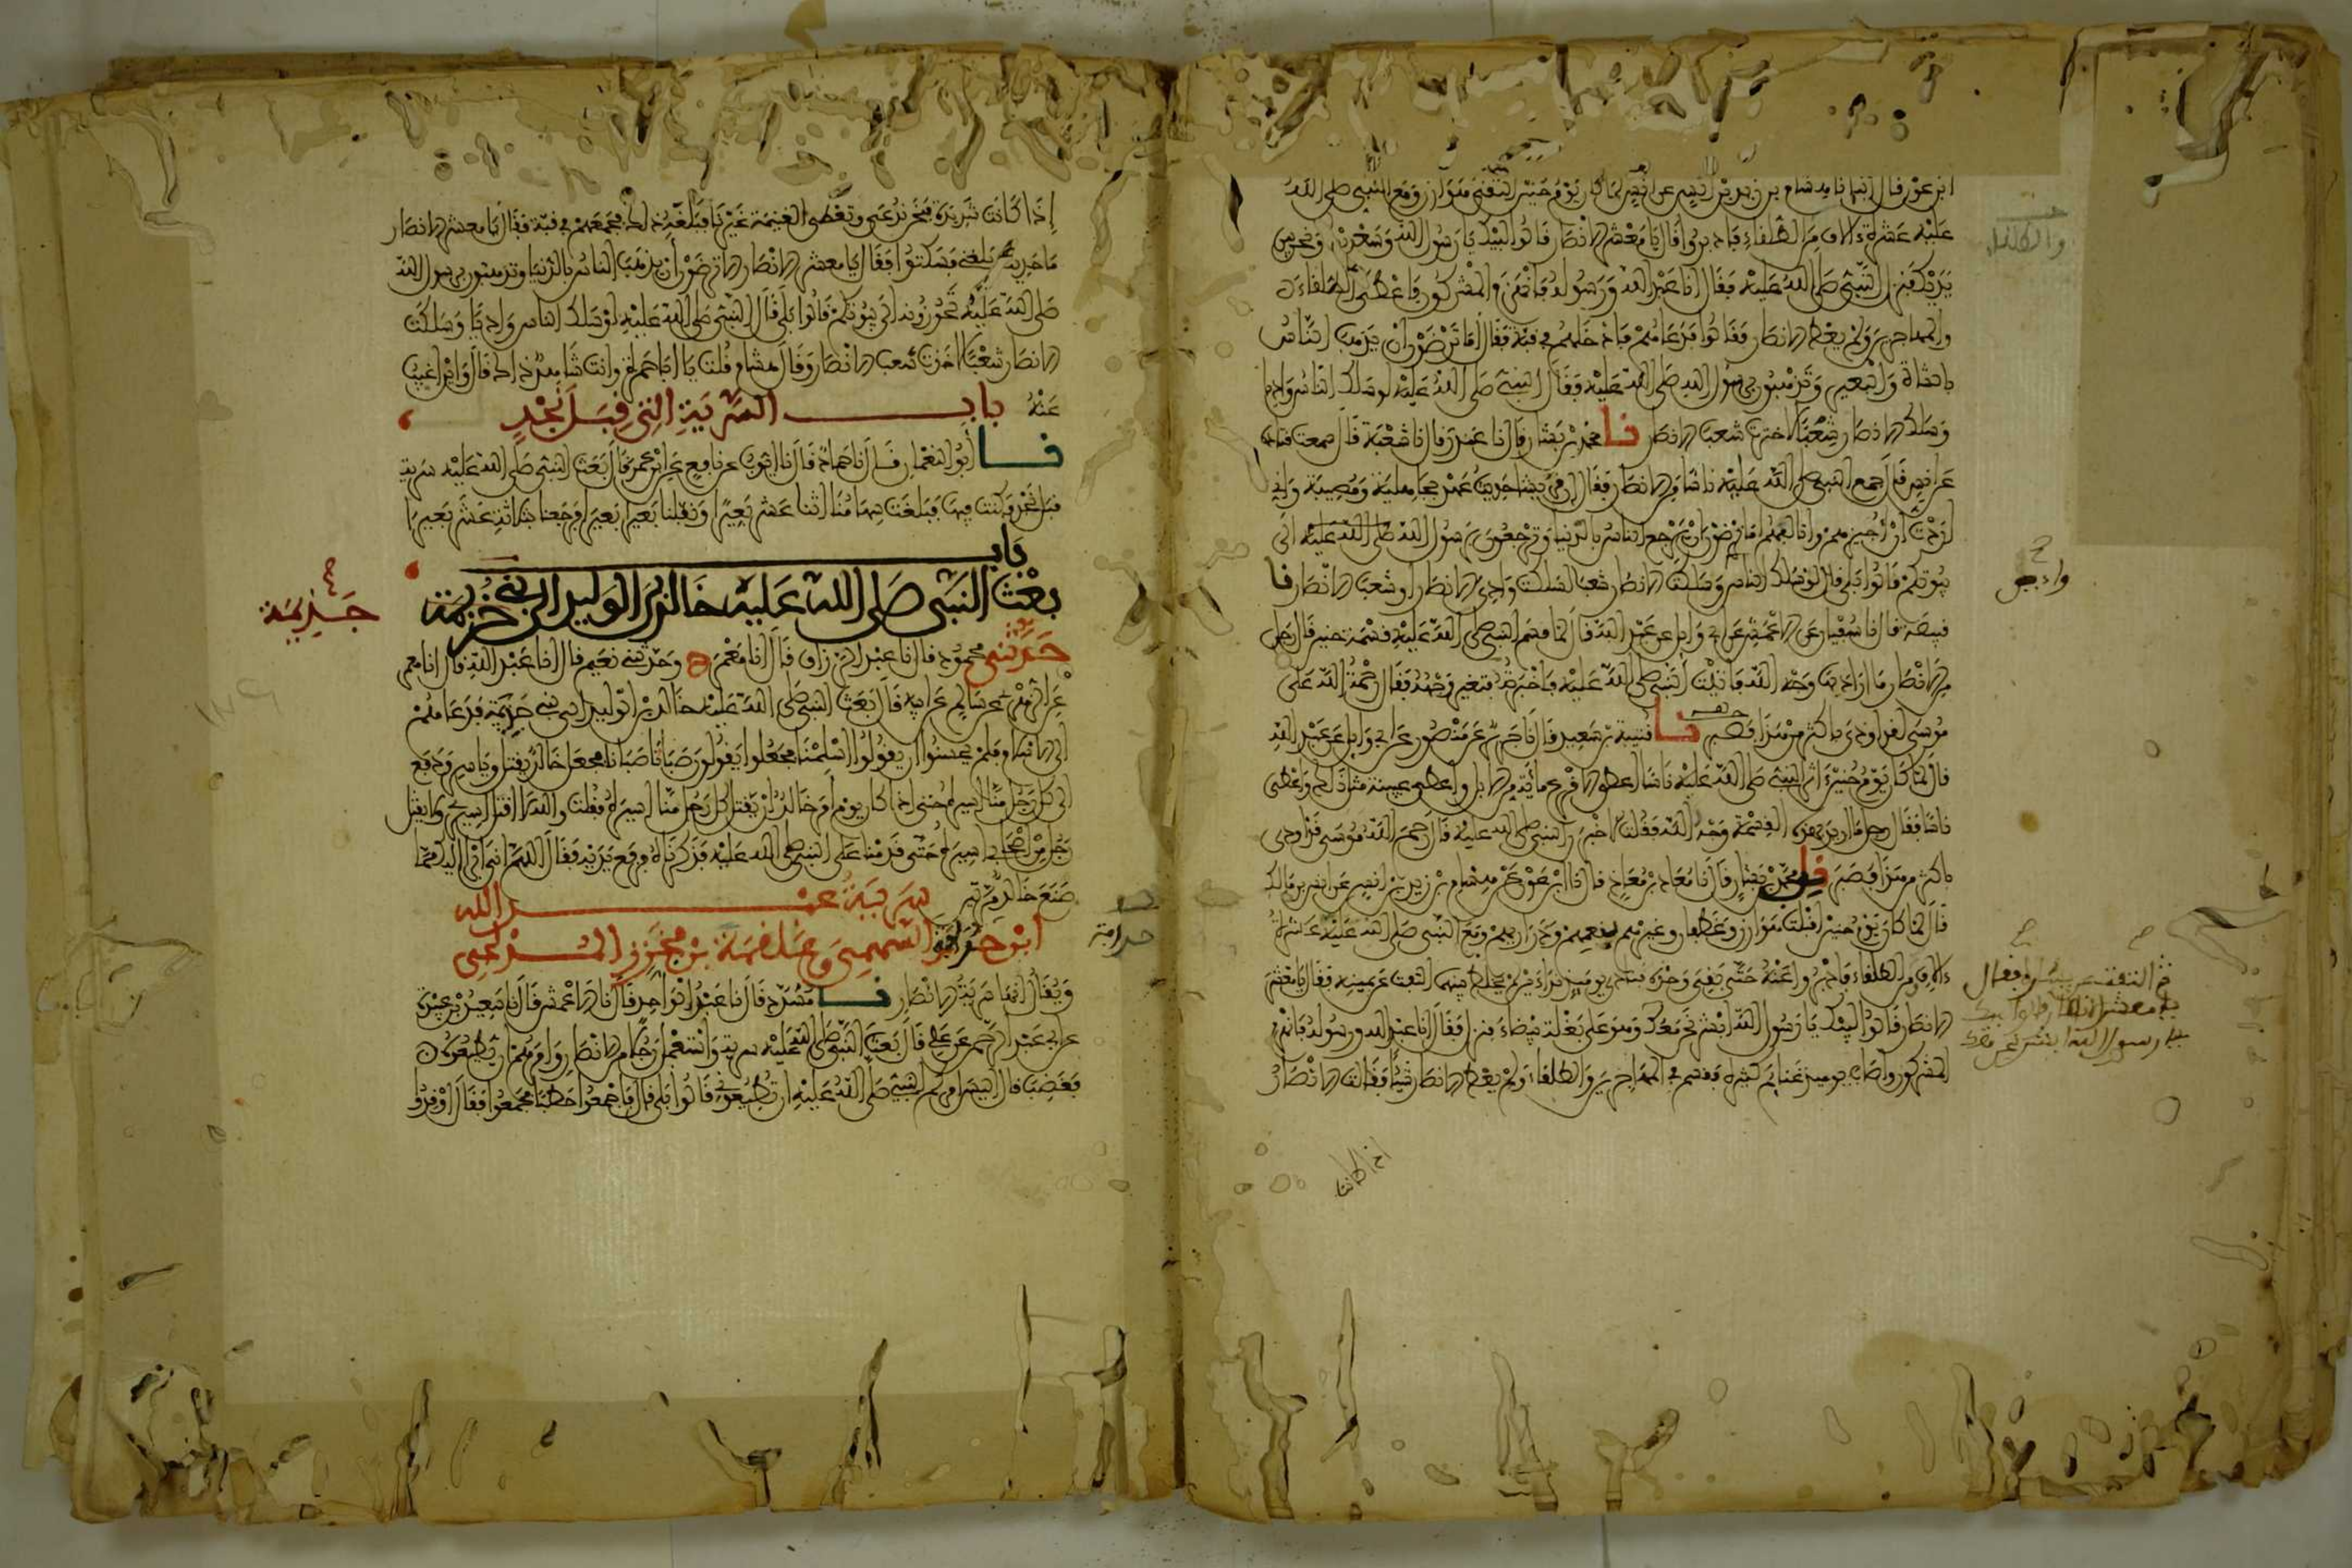 ابن عون قال أنبأنا هشام بن زيد بن أنس عن أنس لما كان يوم حنين التقى هوازن ومع النبي صلى الله
عليه عشرة ءالاف من الطلقاء فأدبروا قال يا معشر الانصار قالوا لبيك يا رسول الله وسعديك ونحن بين
يديك فنزل النبي صلى الله عليه فقال أنا عبد الله ورسوله فانهزم المشركون فأعطى الطلقاء
والمهاجرين ولم يعط الانصار فقالوا فدعاهم فأدخلهم في قبة فقال أما ترضون أن يذهب الناس
بالشاة والبعير وتذهبون برسول الله صلى الله عليه فقال النبي صلى الله عليه لو سلك الناس واديا
وسلك الانصار شعبا لاخترت شعب الانصار نا محمد بن بشار قال نا غندر قال نا شعبة قال سمعت قتادة
عن أنس قال جمع النبي صلى الله عليه ناسا من الانصار فقال إن قريشا حديث عهد بجاهلية ومصيبة وإني
أردت أن أجبرهم وأتألفهم أما ترضون أن يرجع الناس بالدنيا وترجعون برسول الله صلى الله عليه إلى
بيوتكم قالوا بلى قال لو سلك الناس وسلكت الانصار شعبا لسلكت وادي الانصار أو شعب الانصار نا
قبيصة قال نا سفيان عن الاعمش عن أبي وايل عن عبد الله قال لما قسم النبي صلى الله عليه قسمة حنين قال رجل
من الانصار ما أراد بها وجه الله فأتيت النبي صلى الله عليه فأخبرته فتغير وجهه فقال رحمة الله على
موسى لقد أوذي بأكثر من هذا فصبر نا قتيبة بن سعيد قال نا جرير عن منصور عن أبي وايل عن عبد الله
قال لما كان يوم حنين ءاثر النبي صلى الله عليه ناسا أعطى الاقرع مائة من الابل وأعطى عيينة مثل ذلك وأعطى
ناسا فقال رجل ما أريد بهذه القسمة وجه الله فقلت لأخبرن النبي صلى الله عليه قال رحم الله موسى قد أوذي
بأكثر من هذا فصبر نا محمد بن بشار قال نا معاذ بن معاذ قال نا ابن عون عن هشام بن زيد بن أنس عن أنس بن مالك
قال لما كان يوم حنين أقبلت هوازن وغطفان وغيرهم بنعمهم وذراريهم ومع النبي صلى الله عليه عشرة
ءالاف من الطلقاء فأدبروا عنه حتى بقي وحده فنادى يومئذ نداءين لم يخلط بينهما التفت عن يمينه فقال يا معشر
الانصار قالوا لبيك يا رسول الله أبشر نحن معك وهو على بغلة بيضاء فنزل فقال أنا عبد الله ورسوله فانهزم
المشركون وأصاب يومئذ غنايم كثيرة فقسم في المهاجرين والطلقاء ولم يعط الانصار شيئا فقالت الانصار
والطلقاء
ثم التفت عن يساره فقال
يا معشر الانصار قالوا لبيك
يا رسول الله أبشر نحن معك
إذا كانت
إذا كانت شديدة فنحن ندعى وتعطى الغنيمة غيرنا فبلغه ذلك فجمعهم في قبة فقال يا معشر الانصار
ما حديث بلغني فسكتوا فقال يا معشر الانصار الا ترضون أن يذهب الناس بالدنيا وتذهبون برسول الله
صلى الله عليه تحوزونه إلى بيوتكم قالوا بلى قال النبي صلى الله عليه لو سلك الناس واديا وسلكت
الانصار شعبا لاخذت شعب الانصار وقال هشام قلت يا أبا حمزة وأنت شاهد ذلك قال وأين أغيب
عنه باب السرية التي قبل نجد
نا أبو النعمان قال نا حماد قال نا أيوب عن نافع عن ابن عمر قال بعث النبي صلى الله عليه سرية
قبل نجد فكنت فيها فبلغت سهامنا اثنا عشر بعيرا ونفلنا بعيرا بعيرا فرجعنا بثلاثة عشر بعيرا
باب
بعث النبي صلى الله عليه خالد بن الوليد إلى بني خزيمة
جذيمة
حدثني محمود قال نا عبد الرزاق قال أنا معمر ح وحدثني نعيم قال أنا عبد الله قال أنا معمر
عن الزهري عن سالم عن أبيه قال بعث النبي صلى الله عليه خالد بن الوليد إلى بني جذيمة فدعاهم
إلى الاسلام فلم يحسنوا أن يقولوا أسلمنا فجعلوا يقولون صبأنا صبأنا فجعل خالد يقتل وياسر ودفع
إلى كل رجل منا أسيره حتى إذا كان يوم أمر خالد أن يقتل كل رجل منا أسيره فقلت والله لا أقتل أسيري ولا يقتل
رجل من أصحابي أسيره حتى قدمنا على النبي صلى الله عليه فذكرناه فرفع يديه فقال اللهم إني أبرأ إليك مما
صنع خالد مرتين سرية عبد الله
ابن حذافة السهمي وعلقمة بن مجزز المدلجي
ويقال إنها سرية الانصار نا مسدد قال نا عبد الواحد قال نا الاعمش قال نا سعيد بن عبيدة
عن أبي عبد الرحمن عن علي قال بعث النبي صلى الله عليه سرية واستعمل رجلا من الانصار وأمرهم أن يطيعوه
فغضب قال أليس أمركم النبي صلى الله عليه أن تطيعوني قالوا بلى قال فاجمعوا حطبا فجمعوا فقال أوقدوا